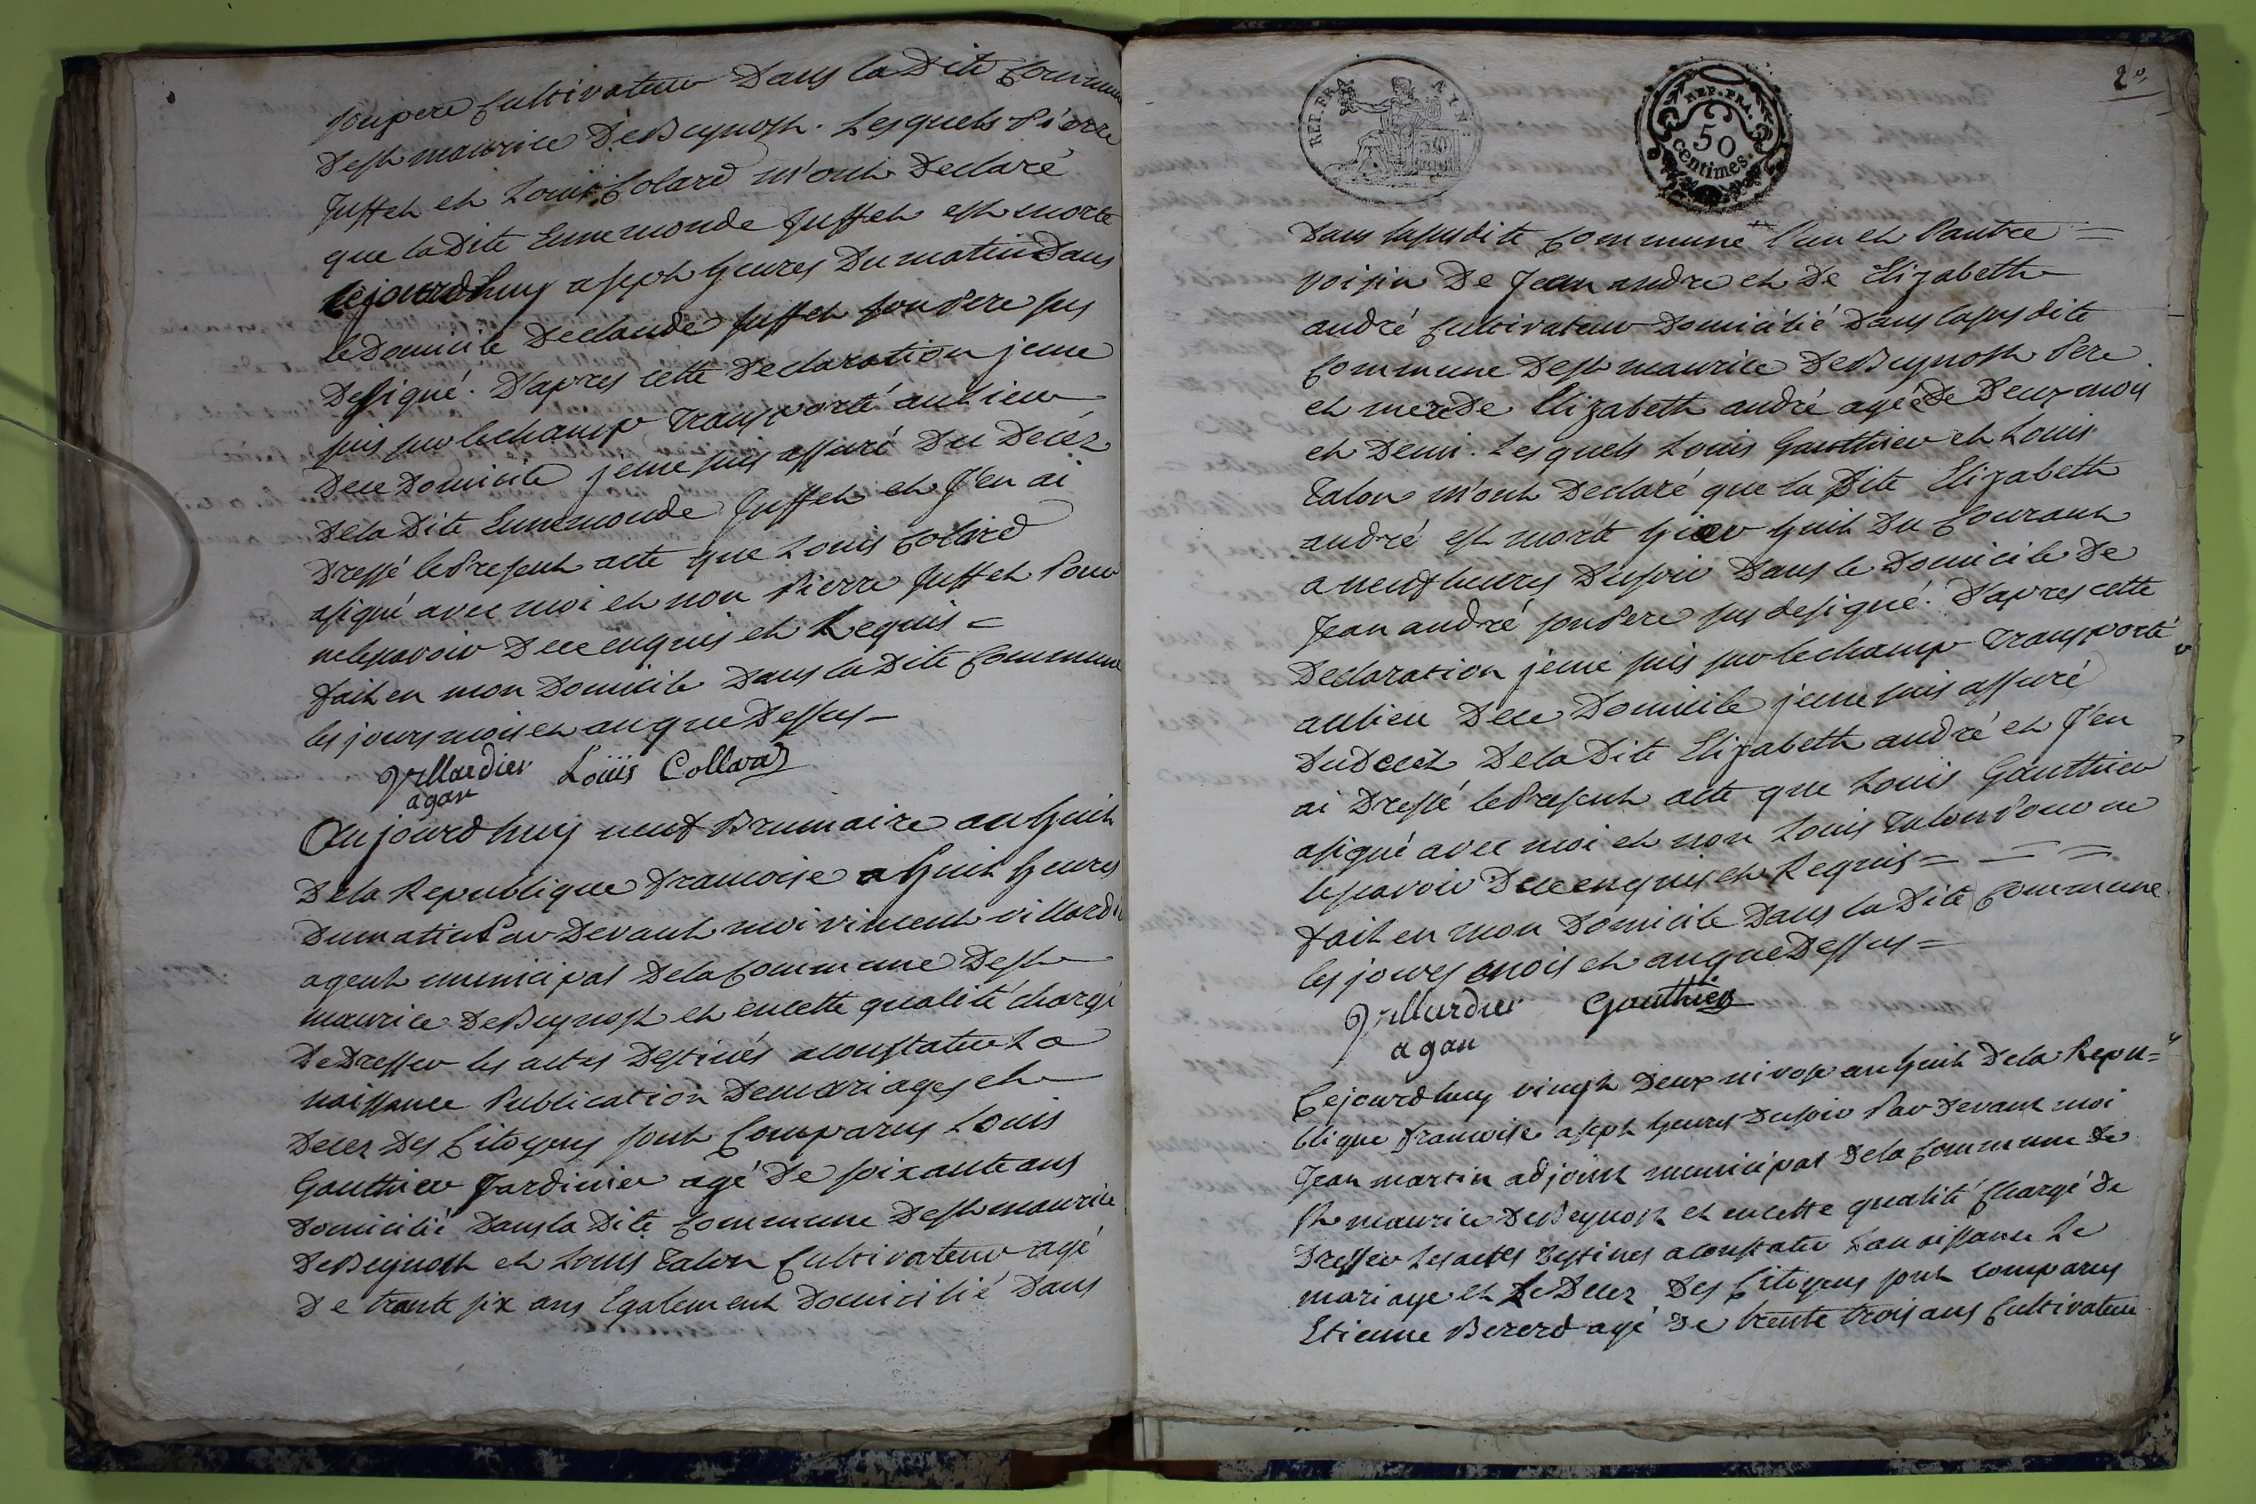 son pere Cultivateur Dans la Dite Commune
De st maurice De Beynost. Lesquels Pierre
Juffet et Louis Colard m'ont Declaré
que la Dite Ennemonde Juffet est morte
cejourdhuy a sept heures Du matin Dans
le Domicile De claude Juffet son Pere sus
Designé. D'apres cette Declaration je me
suis sur le champ Transporté au lieu
De ce Domicile je me suis assuré Du Decéz
De la Dite Ennemonde Juffet et J'en ai
Dressé le Present acte que Louis Colard
a signé avec moi et non Pierre Juffet Pour
ne le savoir De ce enquis et Requis =
fait en mon Domicile Dans la Dite Commune
les jours mois et an que Dessus -
Villardier Louïs Collard
agan
Aujourdhuy neuf Brumaire an huit
De la Republique francoise a huit heures
Du matin Par Devant moi vincent villardier
agent municipal De la Commune De st
maurice De Beynost et en cette qualité chargé
De Dresser les actes Destinés a constater La
naissance Publication De mariages et
Decez Des Citoyens sont Comparus Louis
Gauthier Jardinier agé De soixante ans
Domicilié Dans la Dite Commune De st maurice
De Beynost et Louis Talon Cultivateur agé
De trante six ans Egalement Domicilié Dans
2e
REP. FRA.
REP. FRA.
50
centimes.
Dans la susdite Commune L'un et L'autre =
voisin De Jean andre et De Elizabeth
andré Cultivateur Domicilié Dans la susdite
Commune De st maurice De Beynost Pere
et mere De Elizabeth andré agée De Deux mois
et Demi. Lesquels Louis Gauthier et Louis
Talon m'ont Declaré que la Dite Elizabeth
andré est morte hier huit Du Courant
a neuf heures Du soir Dans le Domicile De
Jean andré son Pere sus designé. D'apres cette
Declaration je me suis sur le champ Transporté
au lieu De ce Domicile je me suis assuré
Du Decéz De la Dite Elizabeth andré et J'en
ai Dressé le Present acte que Louis Gauthier
a signé avec moi et non Louis Talon Pour ne
le savoir De ce enquis et Requis = = =
fait en mon Domicile Dans la Dite Commune
les jours mois et an que Dessus =
Villardier Gauthier
agan
Cejourdhuy vingt Deux nivose an huit De la Repu=
blique francoise a sept heures Du soir Par Devant moi
Jean martin adjoint municipal De la Commune De
st maurice De Beynost et en cette qualité Chargé De
Dresser Les actes Destinés a constater La naissance Le
mariage et Le Decez Des Citoyens sont comparus
Etienne Bererd agé De trente trois ans Cultivateur